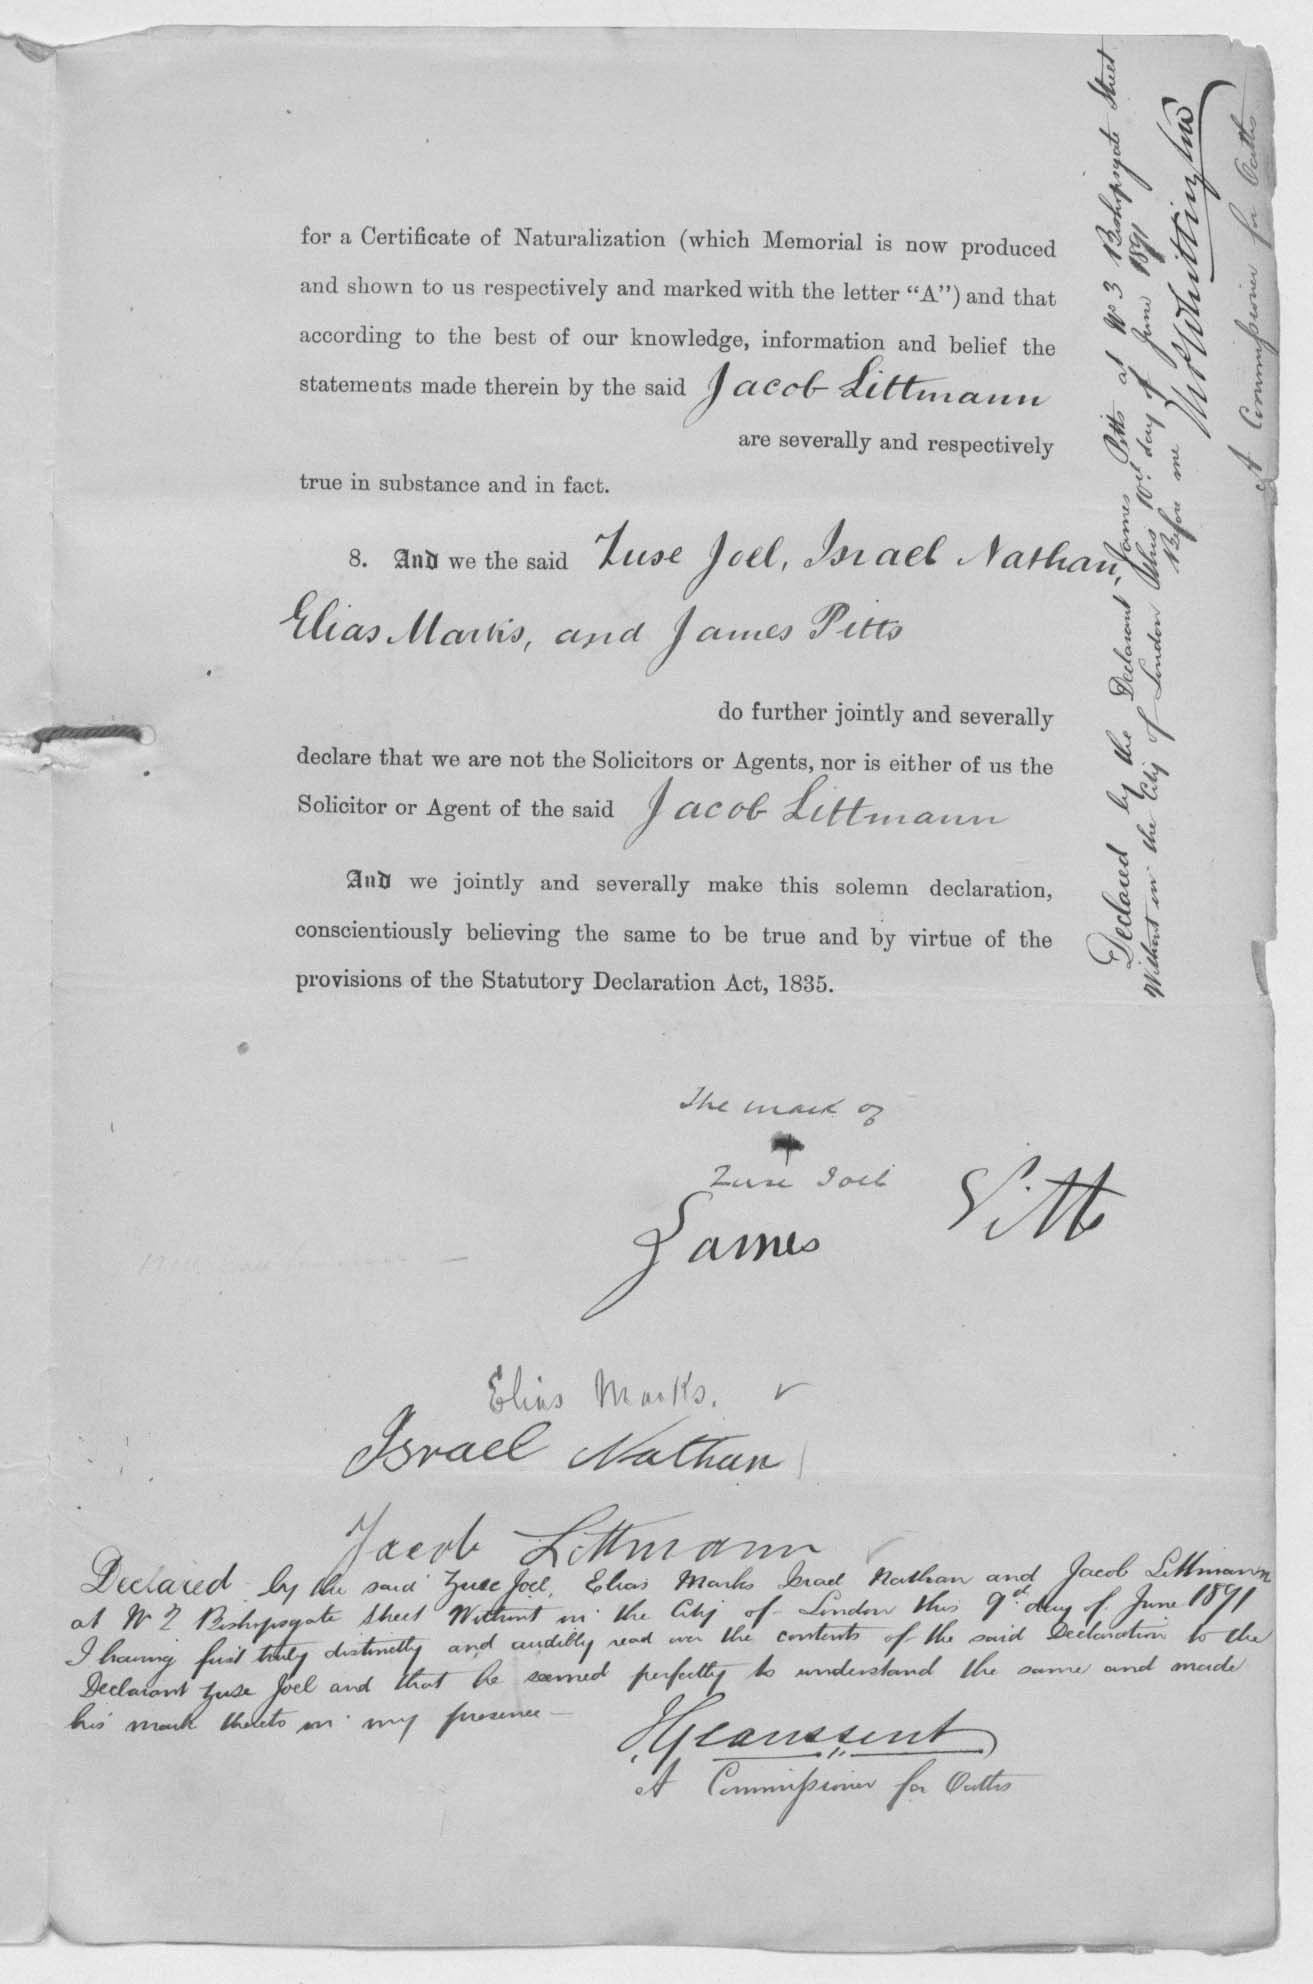 for a Certificate of Naturalization (which Memorial is now produced
and shown to us respectively and marked with the letter “A”) and that
according to the best of our knowledge, information and belief the
statements made therein by the said Jacob Littmann
are severally and respectively
true in substance and in fact.
8. And we the said Zuse Joel, Israel Nathan,
Elias Marks, and James Pitts
do further jointly and severally
declare that we are not the Solicitors or Agents, nor is either of us the
Solicitor or Agent of the said Jacob Littmann
And we jointly and severally make this solemn declaration,
conscientiously believing the same to be true and by virtue of the
provisions of the Statutory Declaration Act, 1835.
The mark of
Zuse Joel
James Pitts
Elias Marks.
Israel Nathan
Jacob Littmann
Declared by the said Zuse Joel, Elias Marks Israel Nathan and Jacob Littmann
at No Bishopsgate Street Without in the City of London this 9th day of June 1891
I having first truly distinctly and audibly read over the contents of the said Declaration to the
Declarant Zuse Joel and that he seemed perfectly to understand the same and made
his mark thereto in my presence —
A Commissioner for Oaths
Declared by the Declarant James Pitts at No 3 Bishopsgate Street
Without in the City of London this 10th day of June 1891
Before me
A Commissioner for Oaths